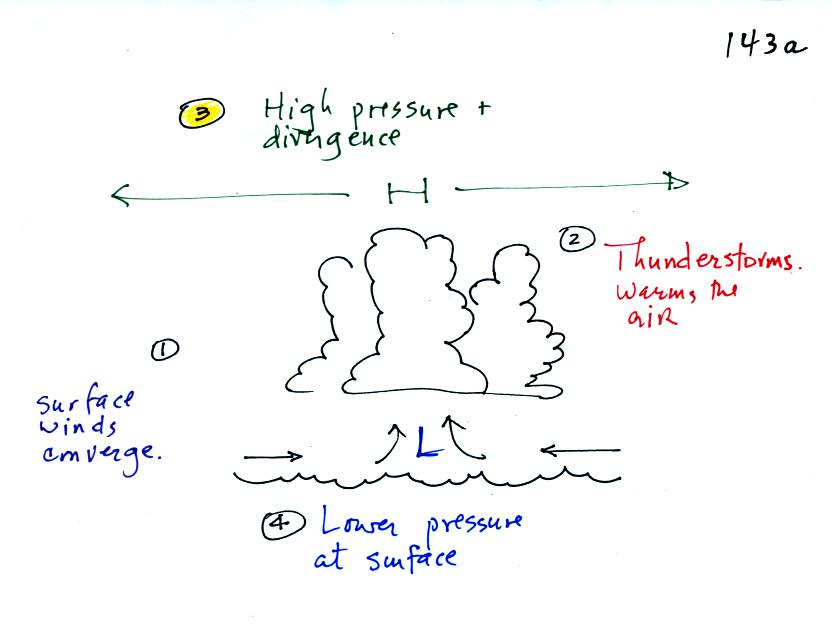 143a
3 High pressure +
divergence
H
2 Thunderstorms.
Warms the
air
1
surface
winds
converge.
L
4 Lower pressure
at surface